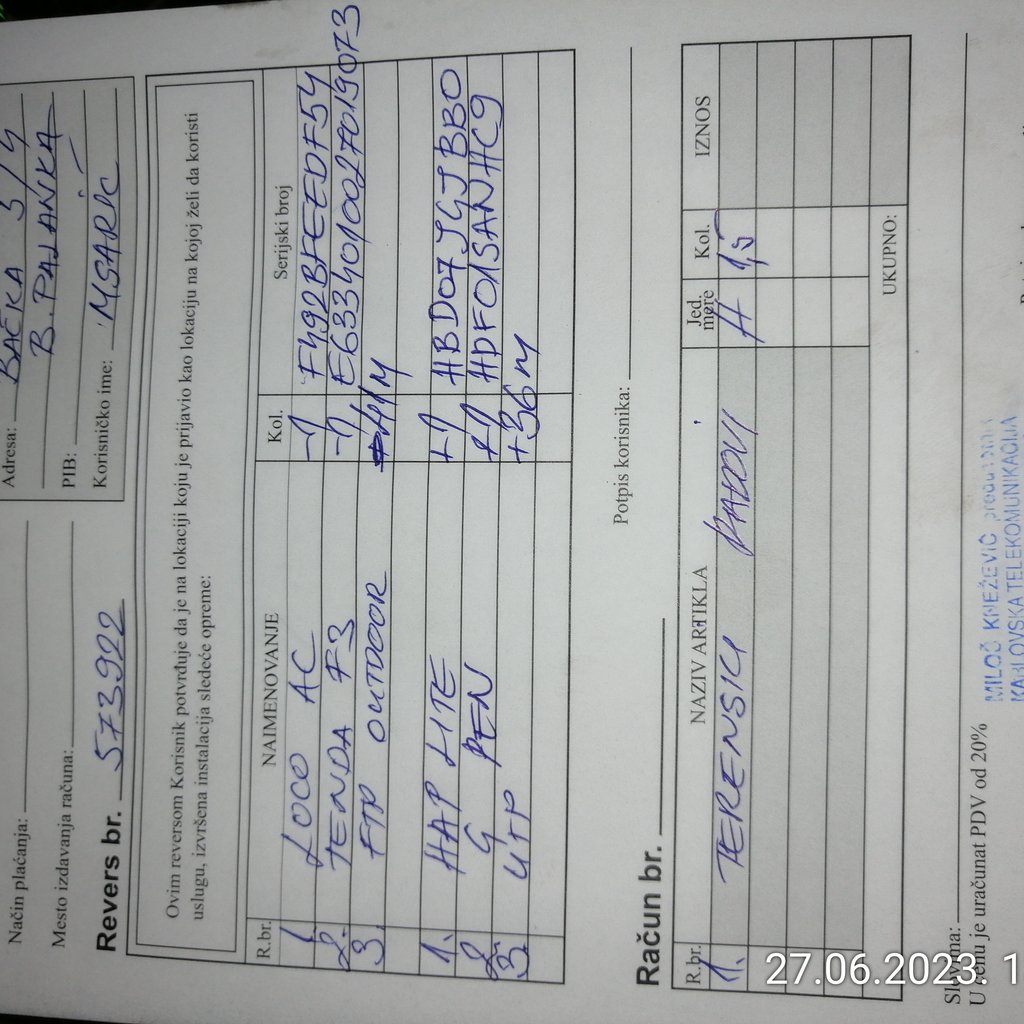 Način plaćanja:
Mesto izdavanja računa:
Revers br. 573922
Adresa: BAČKA 3/4
B. PALANKA
PIB:
Korisničko ime: MSARIĆ
Ovim reversom Korisnik potvrđuje da je na lokaciji koju je prijavio kao lokaciju na kojoj želi da koristi
uslugu, izvršena instalacija sledeće opreme:
R.br. NAIMENOVANJE Kol. Serijski broj
1. LOCO AC -1 F492BFEEDF54
2. TENDA F3 -1 E6334010027019073
3. FTP OUTDOOR
1. HAP LITE +1
2. G PEN +1
3. UTP +36m
Potpis korisnika:
Račun br.
R.br. NAZIV ARTIKLA Jed. mere Kol. IZNOS
1. TERENSKI RADOVI H 1,5
UKUPNO:
U cenu je uračunat PDV od 20%
MILOŠ KNEŽEVIĆ
KABLOVSKA TELEKOMUNIKACIJA
27.06.2023. 1